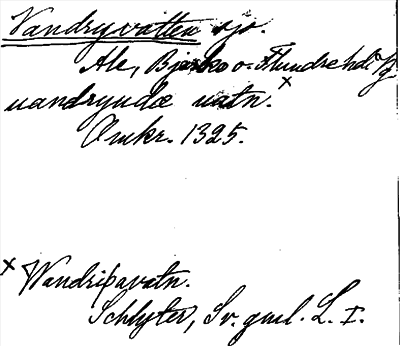 Vandryvatten sjö.
Ale, Bjärke o. Flundre hdr Vg
uandryudæ uatn.x
Omkr. 1325.
x Wandripavatn.
Schlyter, Sv. gml. L. I.